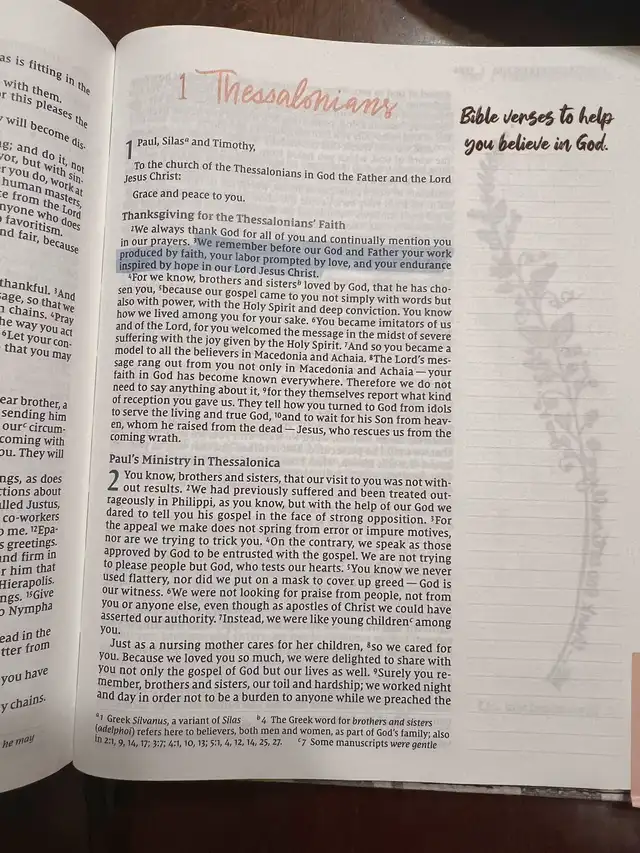 as is fitting in the
with them.
r this pleases the
y will become dis-
ng; and do it, not
vor, but with sin-
er you do, work at
human masters,
ce from the Lord
nyone who does
o favoritism.
nd fair, because
thankful. ³And
sage, so that we
n chains. ⁴Pray
he way you act
⁶Let your con-
that you may
ear brother, a
sending him
ourᶜ circum-
coming with
ou. They will
ngs, as does
ctions about
lled Justus,
co-workers
o me. ¹²Epa-
s greetings.
and firm in
r him that
Hierapolis.
ngs. ¹⁵Give
o Nympha
ead in the
tter from
you have
y chains.
he may
1 Thessalonians
1 Paul, Silasᵃ and Timothy,
To the church of the Thessalonians in God the Father and the Lord
Jesus Christ:
Grace and peace to you.
Thanksgiving for the Thessalonians' Faith
²We always thank God for all of you and continually mention you
in our prayers. ³We remember before our God and Father your work
produced by faith, your labor prompted by love, and your endurance
inspired by hope in our Lord Jesus Christ.
⁴For we know, brothers and sistersᵇ loved by God, that he has cho-
sen you, ⁵because our gospel came to you not simply with words but
also with power, with the Holy Spirit and deep conviction. You know
how we lived among you for your sake. ⁶You became imitators of us
and of the Lord, for you welcomed the message in the midst of severe
suffering with the joy given by the Holy Spirit. ⁷And so you became a
model to all the believers in Macedonia and Achaia. ⁸The Lord's mes-
sage rang out from you not only in Macedonia and Achaia — your
faith in God has become known everywhere. Therefore we do not
need to say anything about it, ⁹for they themselves report what kind
of reception you gave us. They tell how you turned to God from idols
to serve the living and true God, ¹⁰and to wait for his Son from heav-
en, whom he raised from the dead — Jesus, who rescues us from the
coming wrath.
Paul's Ministry in Thessalonica
2 You know, brothers and sisters, that our visit to you was not with-
out results. ²We had previously suffered and been treated out-
rageously in Philippi, as you know, but with the help of our God we
dared to tell you his gospel in the face of strong opposition. ³For
the appeal we make does not spring from error or impure motives,
nor are we trying to trick you. ⁴On the contrary, we speak as those
approved by God to be entrusted with the gospel. We are not trying
to please people but God, who tests our hearts. ⁵You know we never
used flattery, nor did we put on a mask to cover up greed — God is
our witness. ⁶We were not looking for praise from people, not from
you or anyone else, even though as apostles of Christ we could have
asserted our authority. ⁷Instead, we were like young childrenᶜ among
you.
Just as a nursing mother cares for her children, ⁸so we cared for
you. Because we loved you so much, we were delighted to share with
you not only the gospel of God but our lives as well. ⁹Surely you re-
member, brothers and sisters, our toil and hardship; we worked night
and day in order not to be a burden to anyone while we preached the
ᵃ1 Greek Silvanus, a variant of Silas ᵇ4 The Greek word for brothers and sisters
(adelphoi) refers here to believers, both men and women, as part of God's family; also
in 2:1, 9, 14, 17; 3:7; 4:1, 10, 13; 5:1, 4, 12, 14, 25, 27. ᶜ7 Some manuscripts were gentle
Bible verses to help
you believe in God.